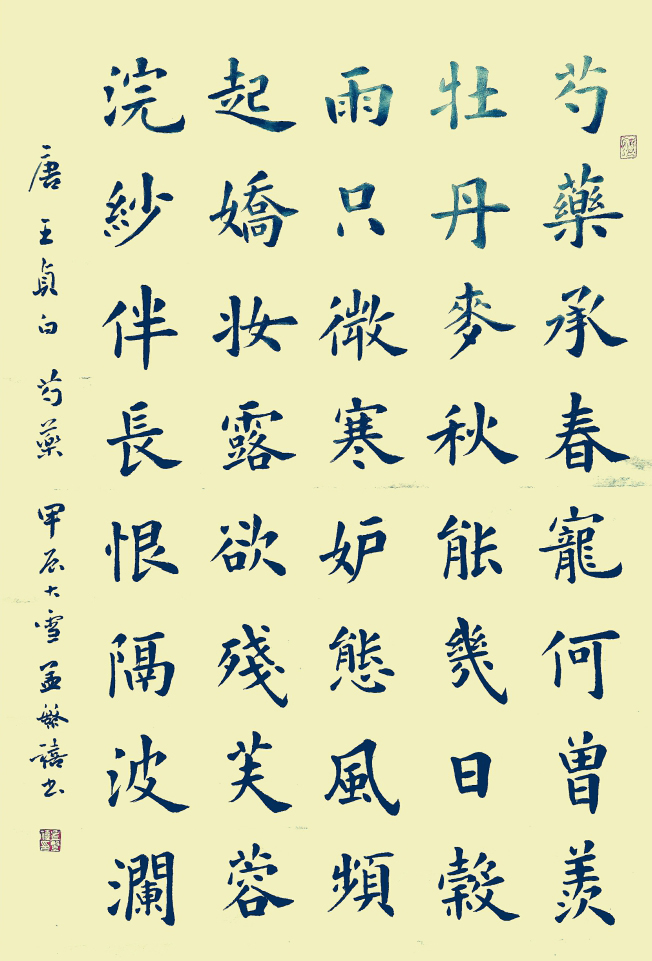 芍藥承春寵何曾羨
牡丹麥秋能幾日穀
雨只微寒妒態風頻
起嬌妆露欲殘芙蓉
浣紗伴長恨隔波瀾
唐 王貞白 芍藥 甲辰大雪 孟繁禧书